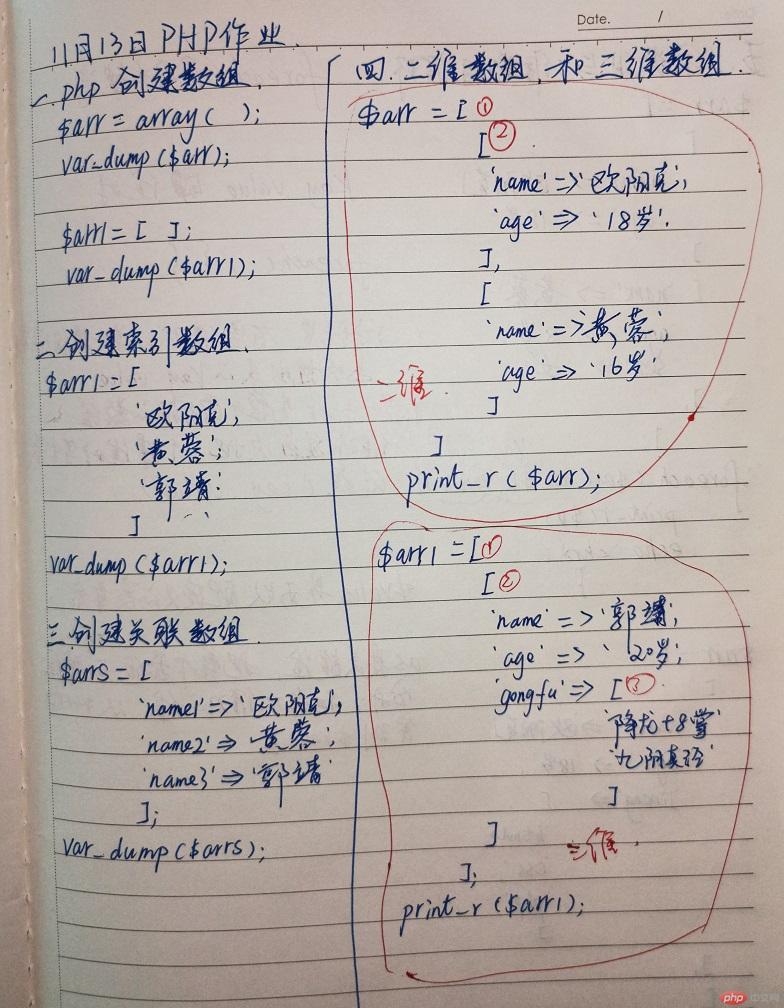 Date. /
11月13日 PHP作业
一. php 创建数组.
$arr = array( );
var_dump($arr);
$arr1 = [ ];
var_dump($arr1);
二.创建索引数组.
$arr1 = [
'欧阳克',
'黄蓉',
'郭靖'
]
var_dump($arr1);
三.创建关联数组
$arrs = [
'name1' => '欧阳克',
'name2' => '黄蓉',
'name3' => '郭靖'
];
var_dump($arrs);
四. 二维数组 和 三维数组.
$arr = [ ①
[ ②
'name' => '欧阳克',
'age' => '18岁'
],
[
'name' => '黄蓉',
'age' => '16岁'
]
二维
]
print_r($arr);
$arr1 = [ ①
[ ②
'name' => '郭靖',
'age' => '20岁',
'gongfu' => [ ③
'降龙十8掌'
'九阴真经'
]
]
三维
];
print_r($arr1);
php